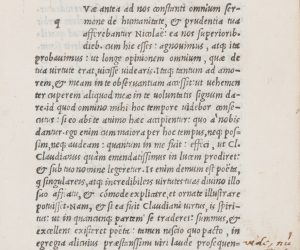 Væ antea ad nos constanti omnium ser⸗
q mone de humanitate, & prudentia tua
afferebantur Nicolaë: ea nos superiori⸗
dieb. cum hic esses: agnouimus, atq; ita
probauimus: ut longe opinionem omnium, quæ de
tua uirtute erat, uicisse uidearis. Itaq; tantum ad amo⸗
rem, & meam in te obseruantiam accessit: ut uehemen
ter cuperem aliquod meæ in te uoluntatis signum da⸗
re: id quod omnino mihi hoc tempore uidebor conse⸗
cutus: si eo abs te animo hæc accipientur: quo a' nobis
dantur. ego enim cum maiora per hoc tempus, neq; pos⸗
sim, neq; audeam: quantum in me fuit: effeci, ut Cl.
Claudianus quàm emendatissimus in lucem prodiret:
& sub tuo nomine legeretur. Is enim demum est poëta,
q singulareis, atq; incredibileis uirtutes tuas diuino il
lo affiatu, & cõmode explicare, et ornate illustrare
potuisset. Nam, & si ea fuit Claudianí uirtus, is spiri⸗
tus: ut in quamcunq; partem se traderet: summus, &
excellens existeret poëta: tamen nescio quo pacto, in
egregia alicuius præstantissimi uiri laude prosequen⸗